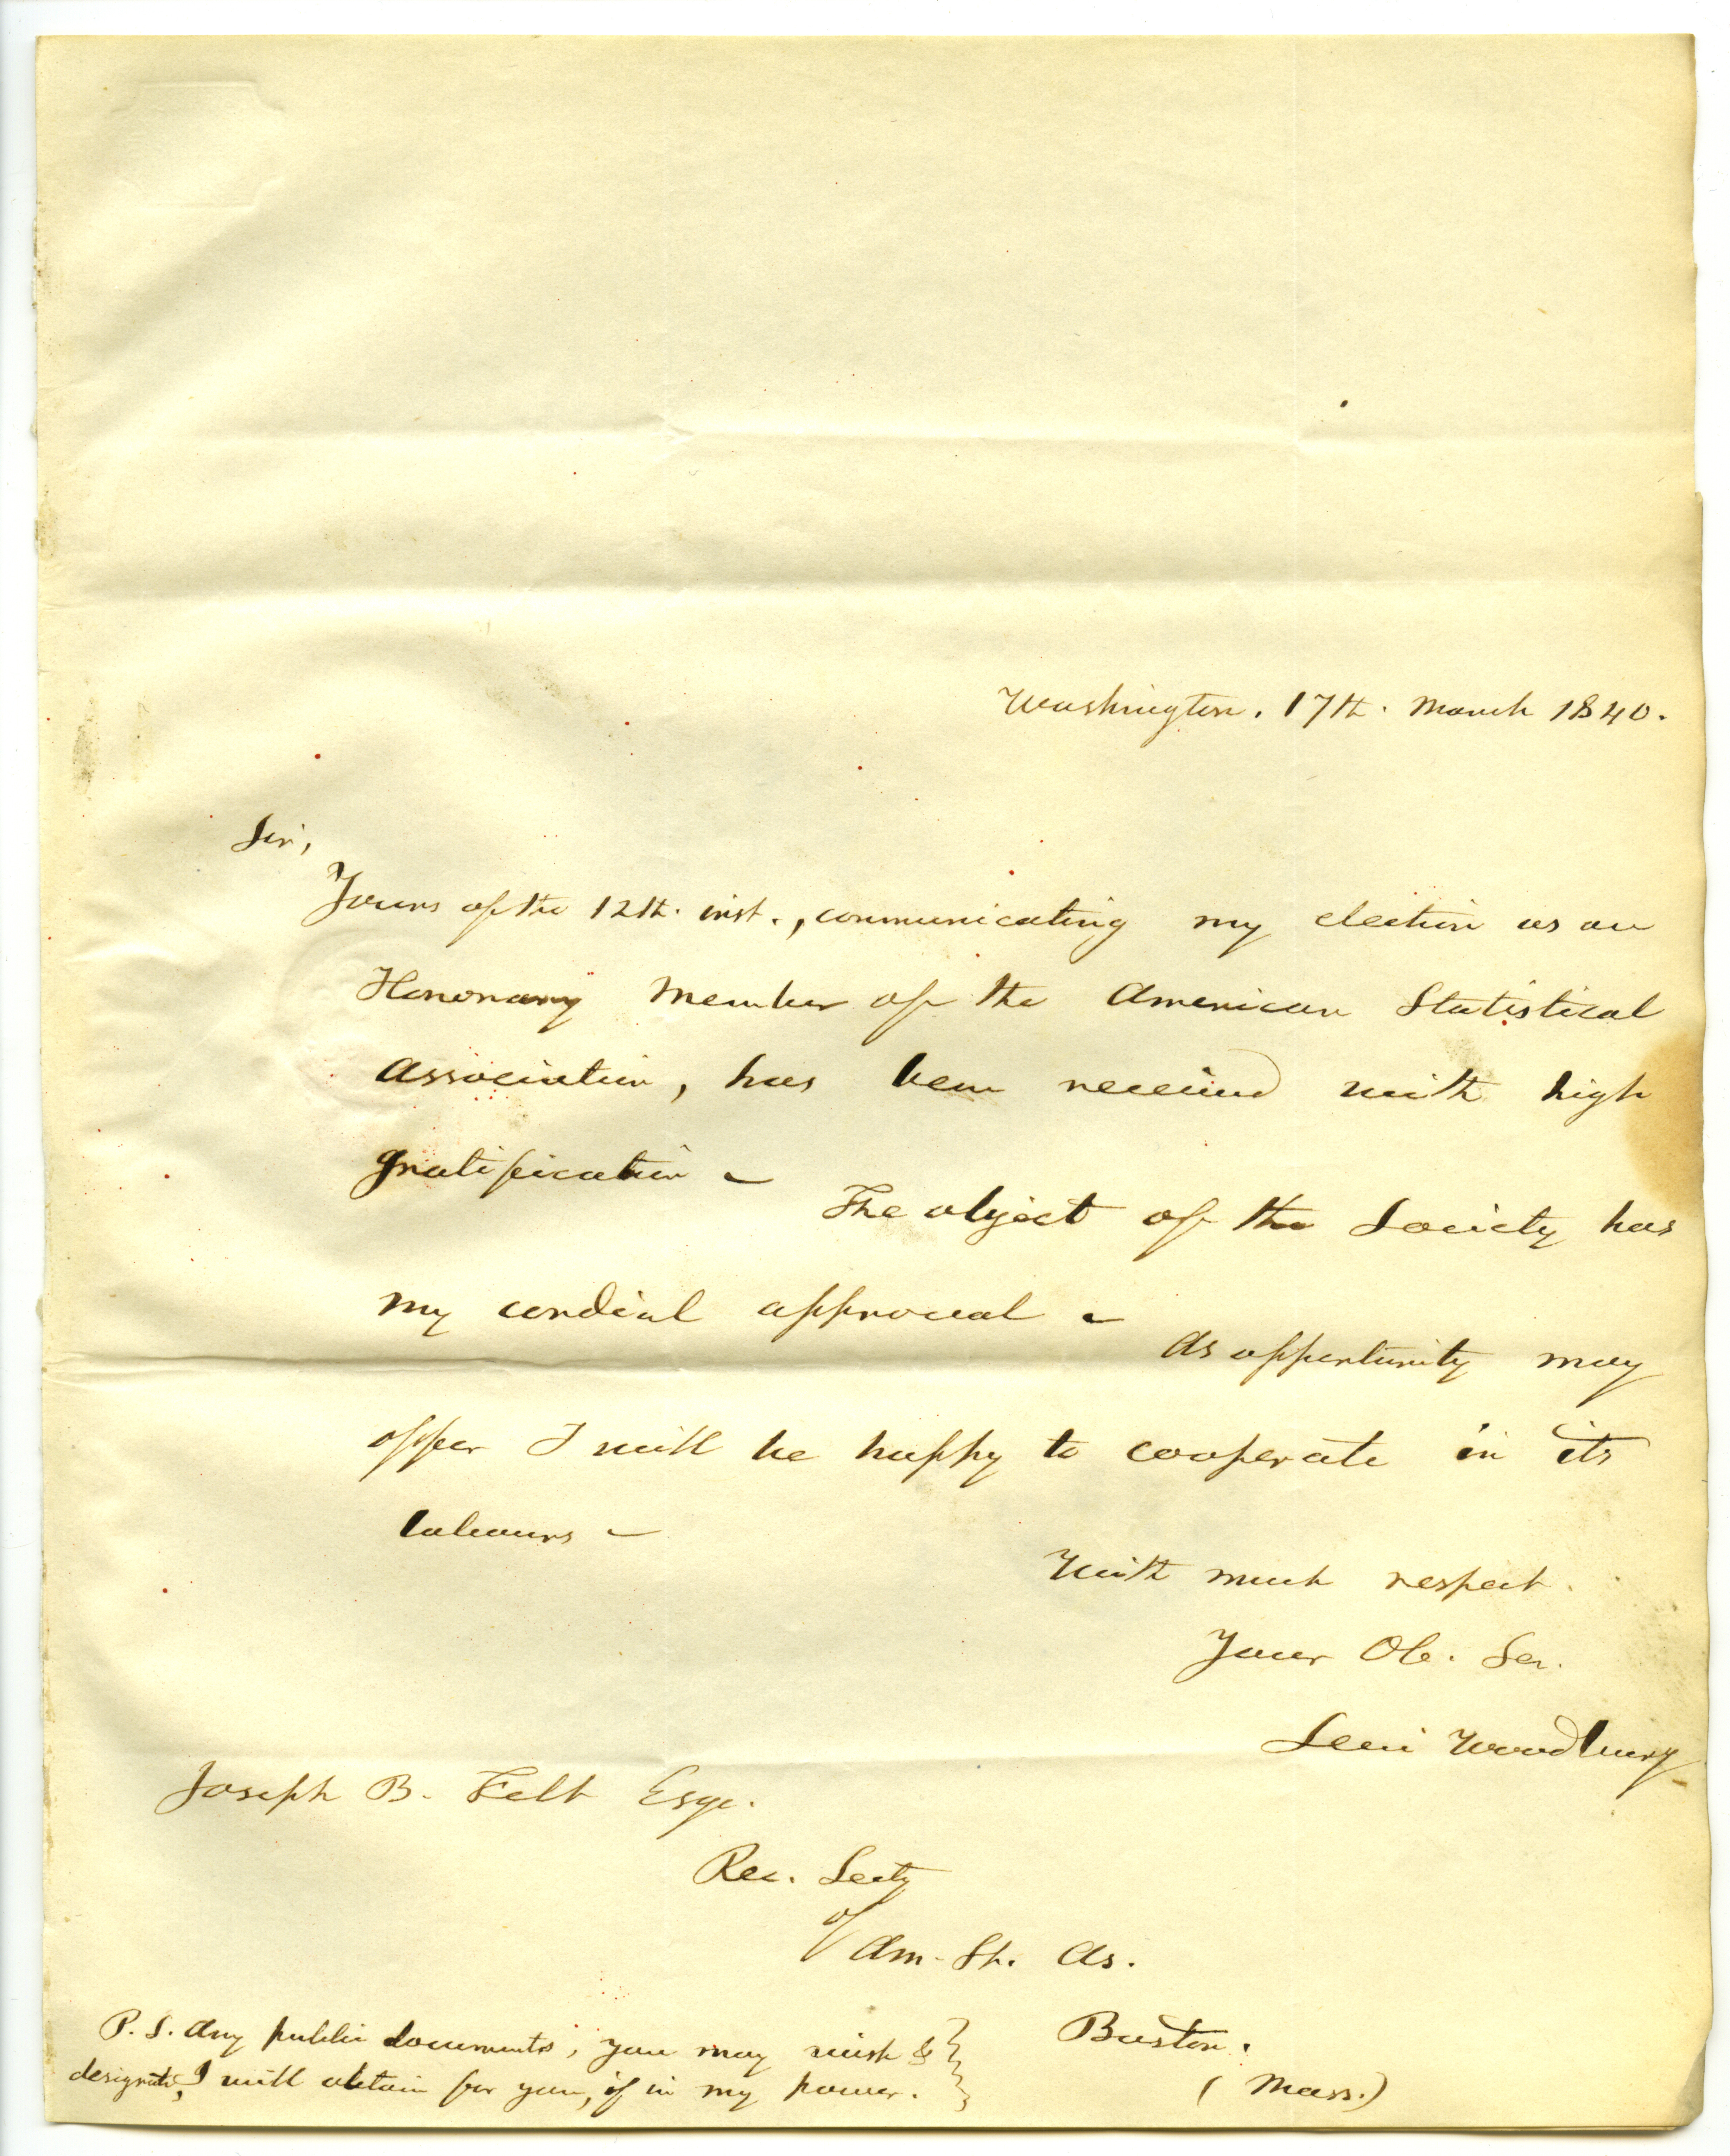 Washington. 17th. March 1840.
Sir,
Yours of the 12th. inst., communicating my election as an
Honorary Member of the American Statistical
Association, has been received with high
gratification –
The object of the Society has
my cordial approval –
As opportunity may
offer I will be happy to cooperate in its
labours –
With much respect.
Your Ob. Ser.
Levi Woodbury
Joseph B. Felt Esqr.
Rec. Secty
of
Am. St. As.
Boston.
(Mass.)
P.S. Any public documents, you may wish &
designate, I will obtain for you, if in my power.